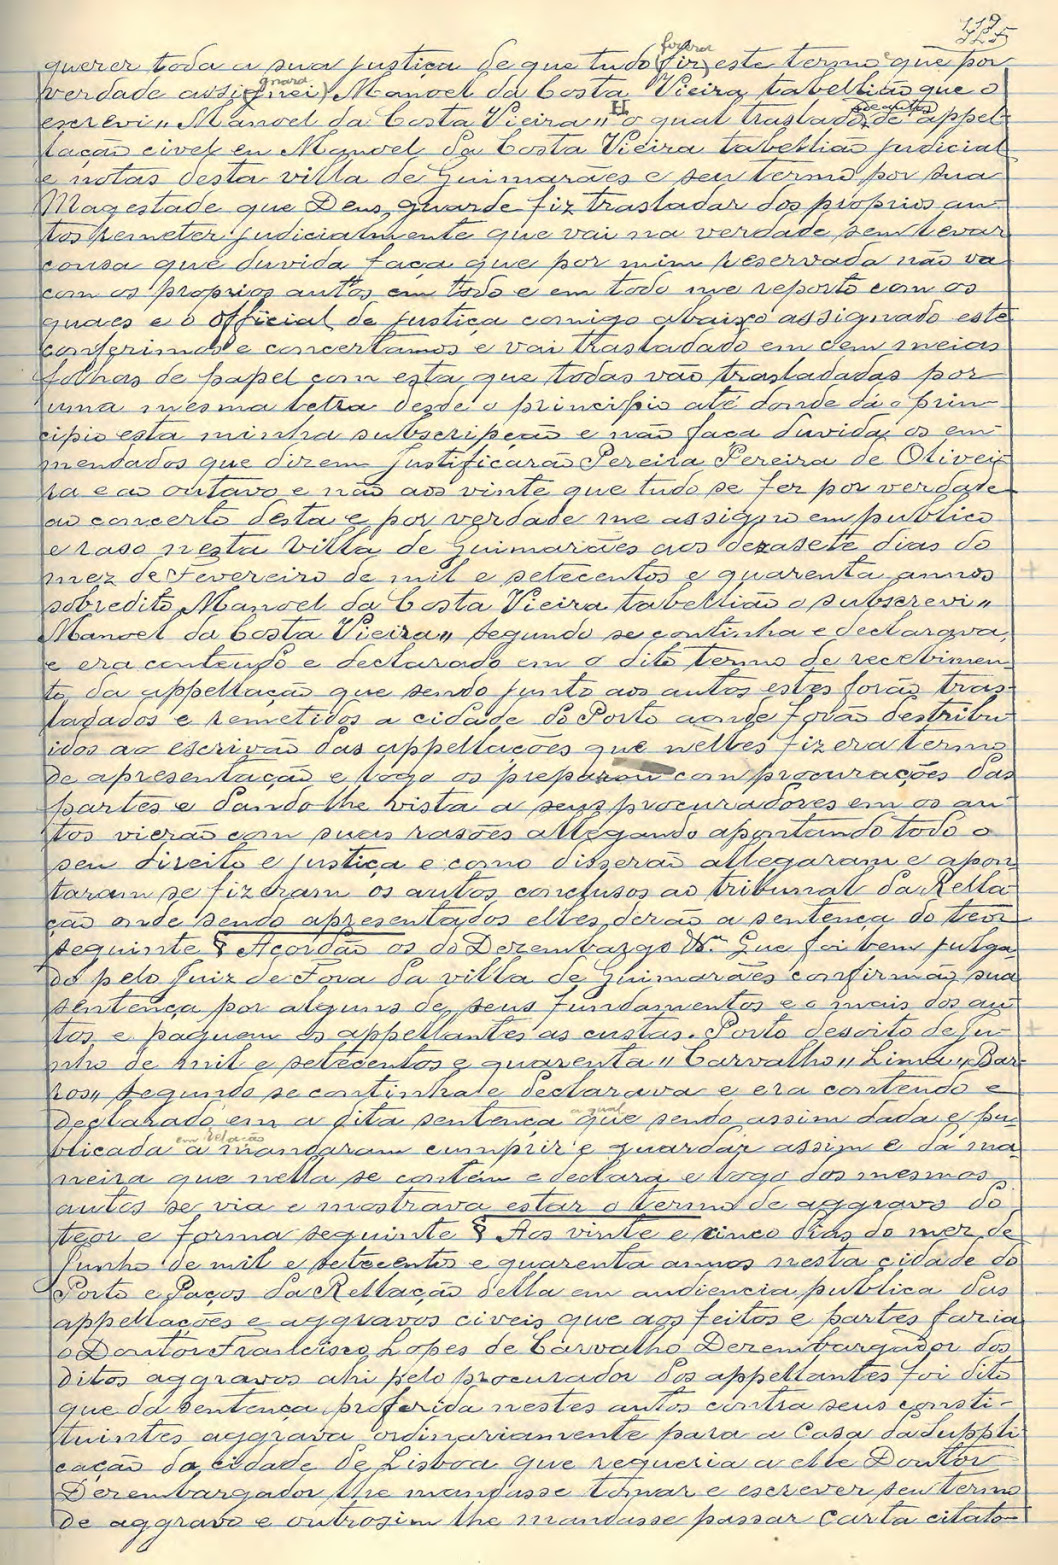 119
115
querer toda a sua justiça de que tudo (fiz) este termo que por
fizera
verdade assig(nei) Manoel da Costa Vieira tabellião que o
gnara
escrevi" Manoel da Costa Vieira" o qual traslado de appel-
H
de autos
lação civel eu Manoel da Costa Vieira tabellião judicial
e notas desta villa de Guimarães e seu termo por sua
Magestade que Deus guarde fiz trasladar dos proprios au-
tos remeter judicialmente que vai na verdade sem levar
cousa que duvida faça que por mim reservada não va
com os proprios autos em todo e em todo me reporto com os
quaes e o official de justiça comigo abaixo assignado este
conferimos e concertamos e vai trasladado em cem meias
folhas de papel com esta que todas vão trasladadas por
uma mesma letra desde o principio até donde dá o prin-
cipio esta minha subscripção e não faça duvida os em-
mendados que dizem Justificarão Pereira Pereira de Olivei-
ra e ao outavo e não aos vinte que tudo se fez por verdade
ao concerto desta e por verdade me assigno em publico
e raso nesta villa de Guimarães aos dezasete dias do
mez de Fevereiro de mil e setecentos e quarenta annos
sobredito Manoel da Costa Vieira tabellião o subscrevi"
Manoel da Costa Vieira" segundo se continha e declarava,
e era contendo e declarado em o dito termo de recebimen-
to da appellação que sendo junto aos autos estes forão tras-
ladados e remetidos a cidade do Porto aonde forão destribu-
idos ao escrivão das appellações que nelles fizera termo
de apresentação e logo os preparou com procurações das
partes e dando-lhe vista a seus procuradores em os au-
tos vierão com suas rasões allegando apontando todo o
seu direito e justiça e como disserão allegaram e apon-
taram se fizeram os autos conclusos ao tribunal da Rella-
ção onde sendo apresentados elles derão a sentença do teor
seguinte § Acordão os do Dezembargo Vª. Que foi bem julga-
do pelo Juiz de Fora da villa de Guimarães confirmão sua
sentença por alguns de seus fundamentos e o mais dos au-
tos e paguem os appellantes as custas. Porto desoito de Ju-
nho de mil e setecentos e quarenta" Carvalho" Lima" Bar-
ros" segundo se continha e declarava e era contendo e
declarado em a dita sentença que sendo assim dada e pu-
a qual
blicada a mandaram cumprir e guardar assim e da ma-
em relação
neira que nella se contém e declara e logo dos mesmos
autos se via e mostrava estar o termo de aggravo do
teor e forma seguinte § Aos vinte e cinco dias do mez de
Junho de mil e setecentos e quarenta annos nesta cidade do
Porto e Paços da Rellação della em audiencia publica das
appellações e aggravos civeis que aos feitos e partes faria
o Doutor Francisco Lopes de Carvalho Dezembargador dos
ditos aggravos ahi pelo procurador dos appellantes foi dito
que da sentença proferida nestes autos contra seus consti-
tuintes aggrava ordinariamente para a Casa da Suppli-
cação da cidade de Lisboa que requeria a elle Doutor
Dezembargador lhe mandasse tomar e escrever seu termo
de aggravo e outrosim lhe mandasse passar carta citato-